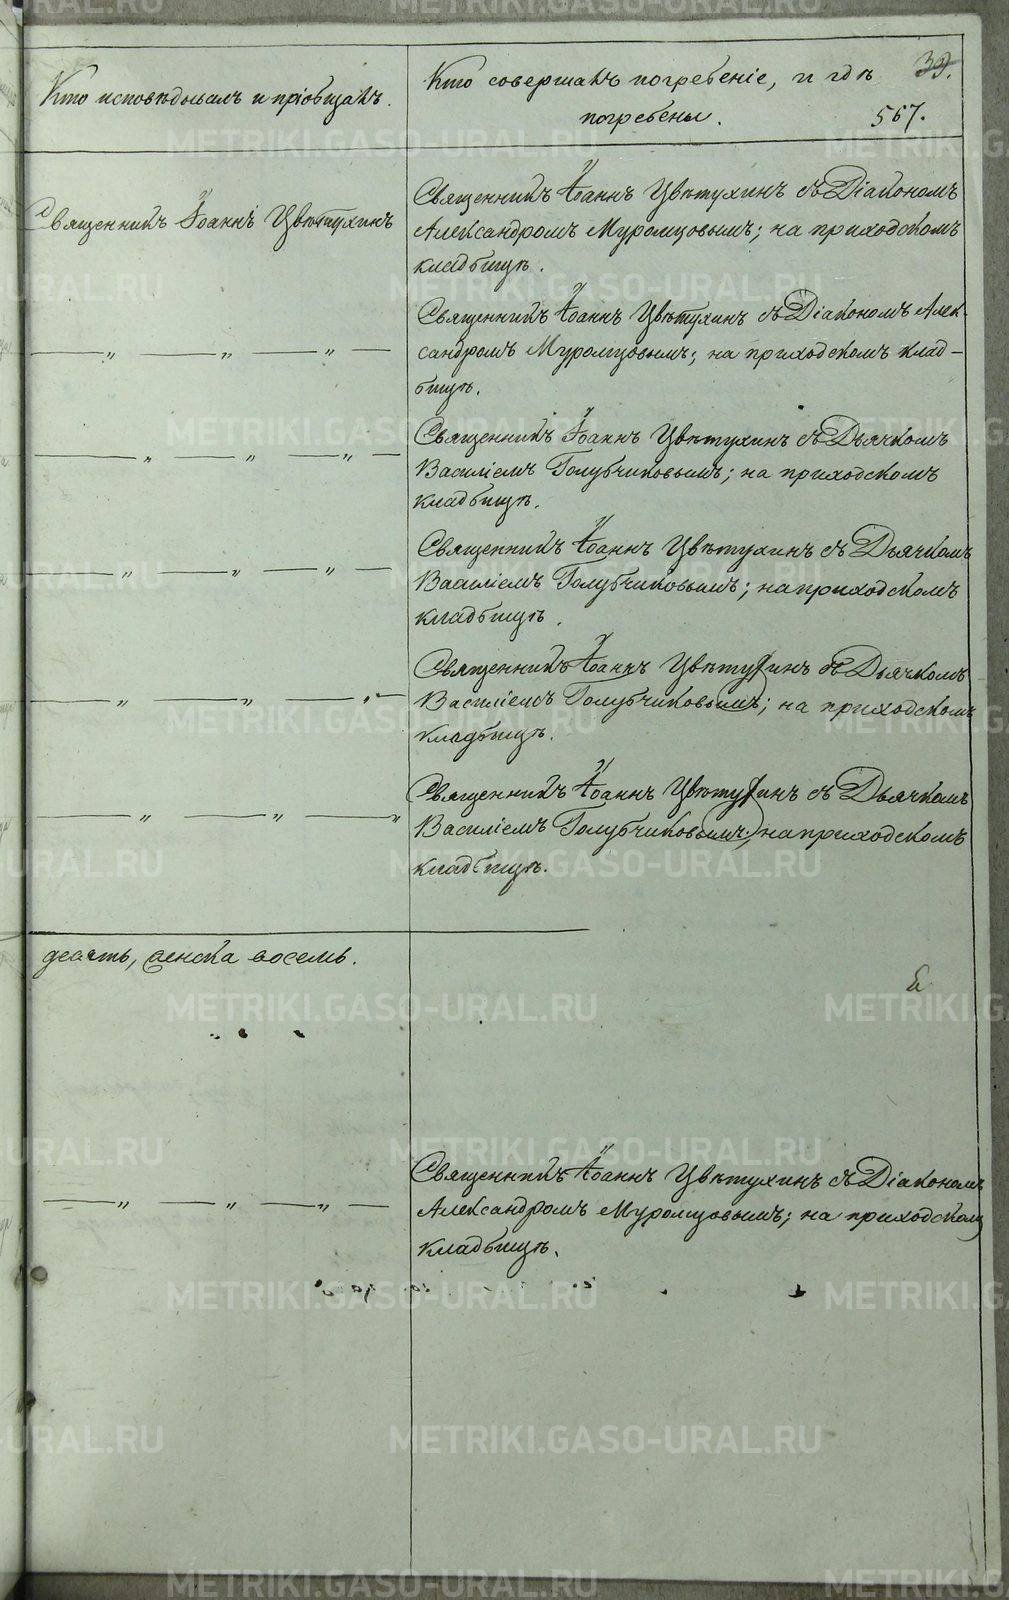 39.
557.
Кто исповѣдывалъ и пріобщалъ.
Кто совершалъ погребеніе, и гдѣ
погребены.
Священникъ Іоаннъ Цвѣтухинъ
Священникъ Іоаннъ Цвѣтухинъ съ Діакономъ
Александромъ Муромцовымъ; на приходскомъ
кладбищѣ.
— „ — „ — „ —
Священникъ Іоаннъ Цвѣтухинъ съ Діакономъ Алек-
сандромъ Муромцовымъ; на приходскомъ клад-
бищѣ.
— „ — „ — „ —
Священникъ Іоаннъ Цвѣтухинъ съ Дьячкомъ
Василіемъ Голубчиковымъ; на приходскомъ
кладбищѣ.
— „ — „ — „ —
Священникъ Іоаннъ Цвѣтухинъ съ Дьячкомъ
Василіемъ Голубчиковымъ; на приходскомъ
кладбищѣ.
— „ — „ — „ —
Священникъ Іоаннъ Цвѣтухинъ съ Дьячкомъ
Василіемъ Голубчиковымъ; на приходскомъ
кладбищѣ.
— „ — „ — „
Священникъ Іоаннъ Цвѣтухинъ съ Дьячкомъ
Василіемъ Голубчиковымъ; на приходскомъ
кладбищѣ.
десять, женска восемь.
— „ — „ — „ —
Священникъ Іоаннъ Цвѣтухинъ съ Діакономъ
Александромъ Муромцовымъ; на приходскомъ
кладбищѣ.
METRIKI.GASO-URAL.RU